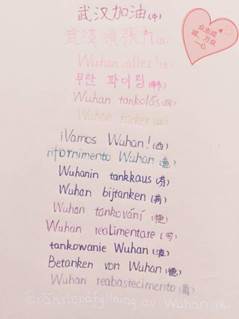 武汉加油(中)
Wuhan allez!
우한 파이팅(韩)
Wuhan tankolás
¡Vamos Wuhan!(西)
rifornimento Wuhan
Wuhanin tankkaus(芬)
Wuhan bijtanken(荷)
Wuhan tankování
Wuhan realimentare
tankowanie Wuhan(波)
Betanken von Wuhan(德)
Wuhan reabastecimento(葡)
众志成
城,万众
一心